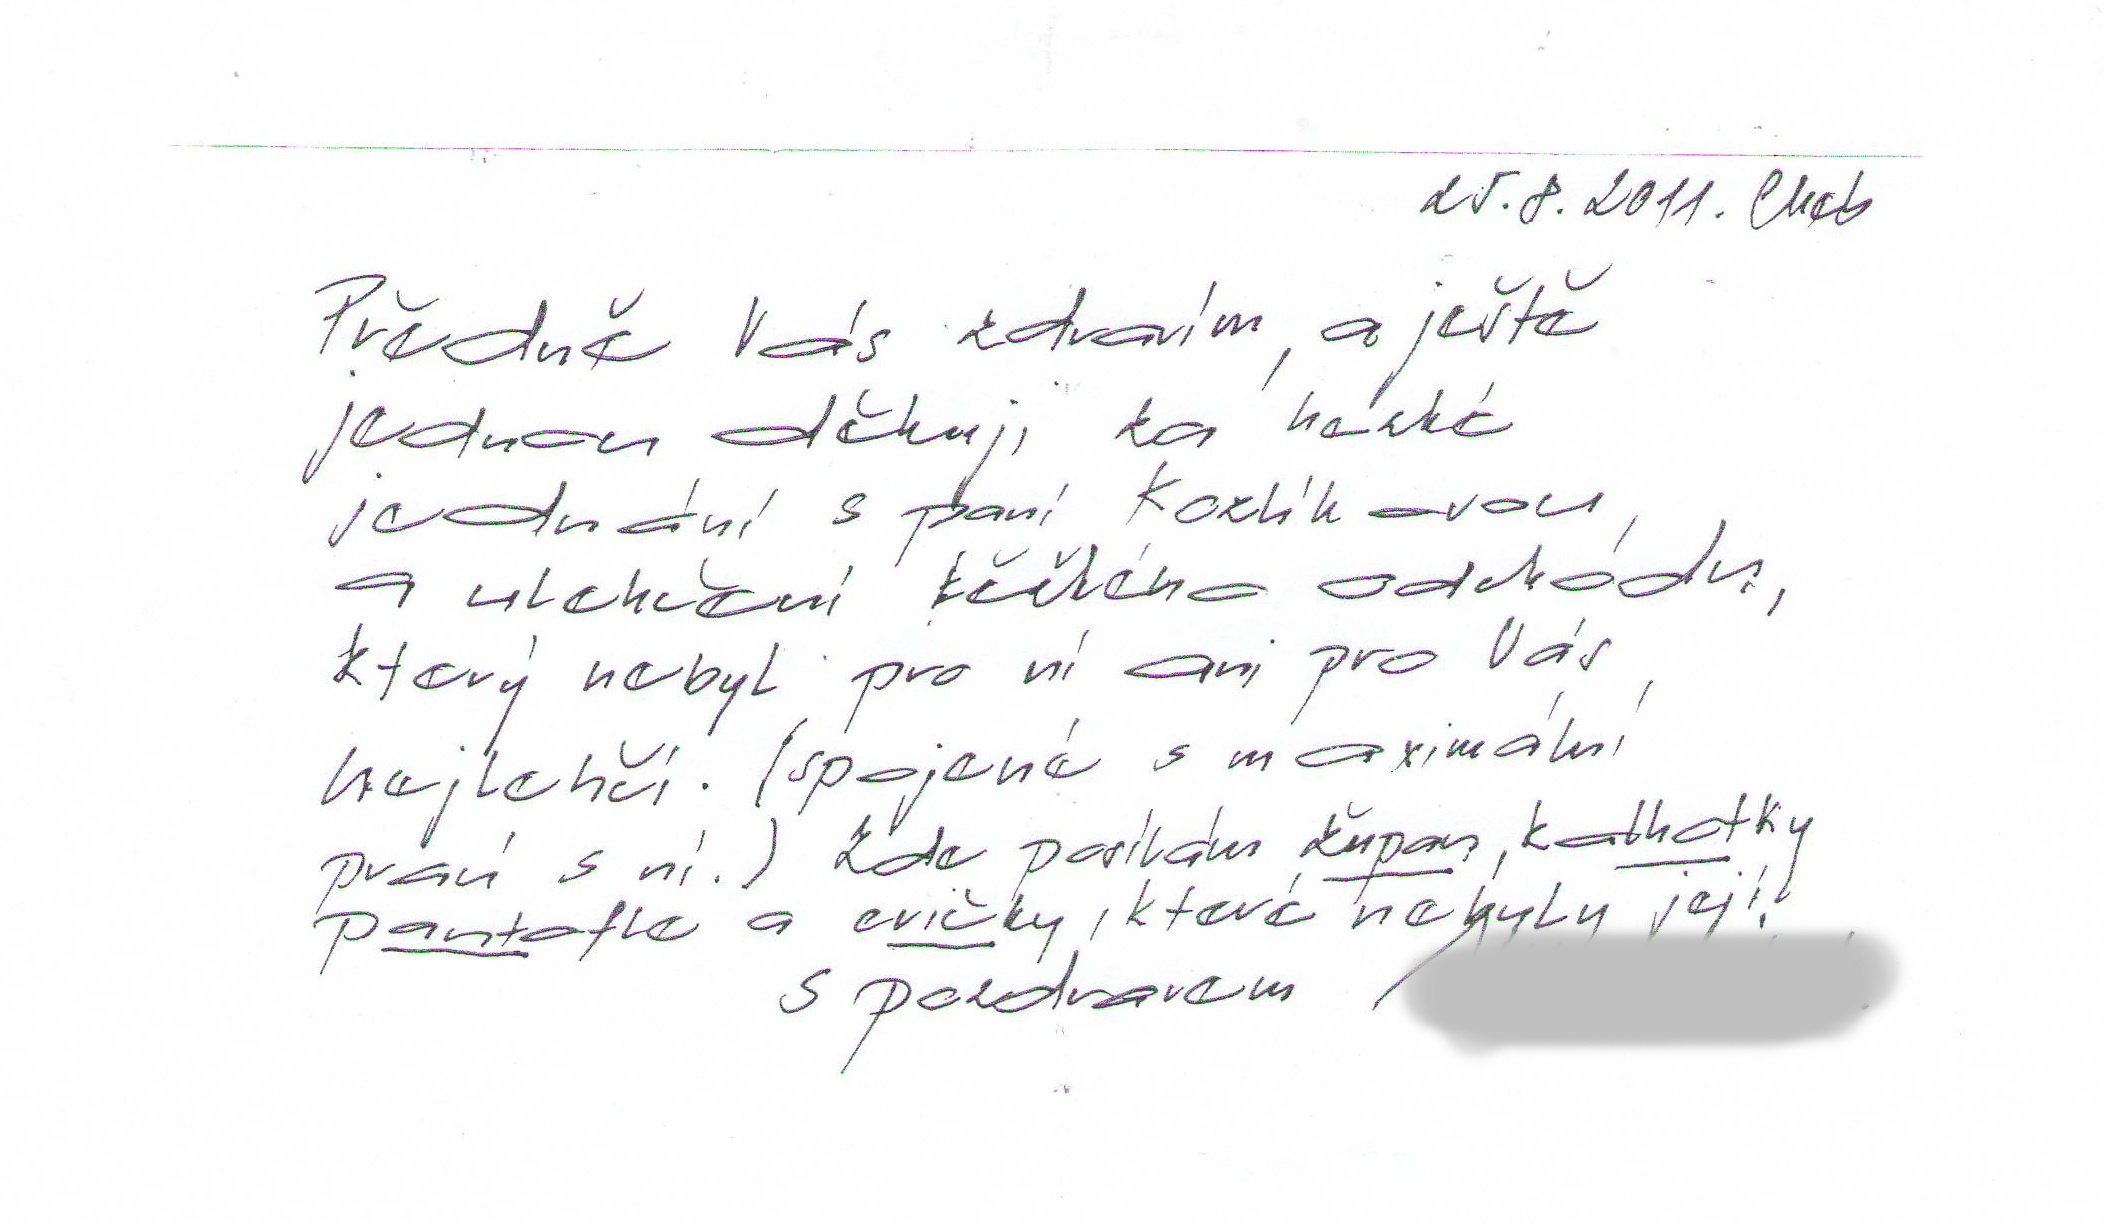 25.8.2011. Cheb
Předně Vás zdravím, a ještě
jednou děkuji za hezké
jednání s paní Kozlíkovou,
a ulehčení těžkého odchódu,
který nebyl pro ní ani pro Vás,
nejlehčí. (spojené s maximální
praní s ní.) Zde posílám župan, kalhotky
pantofle a cvičky, které nebyly její!
s pozdravem